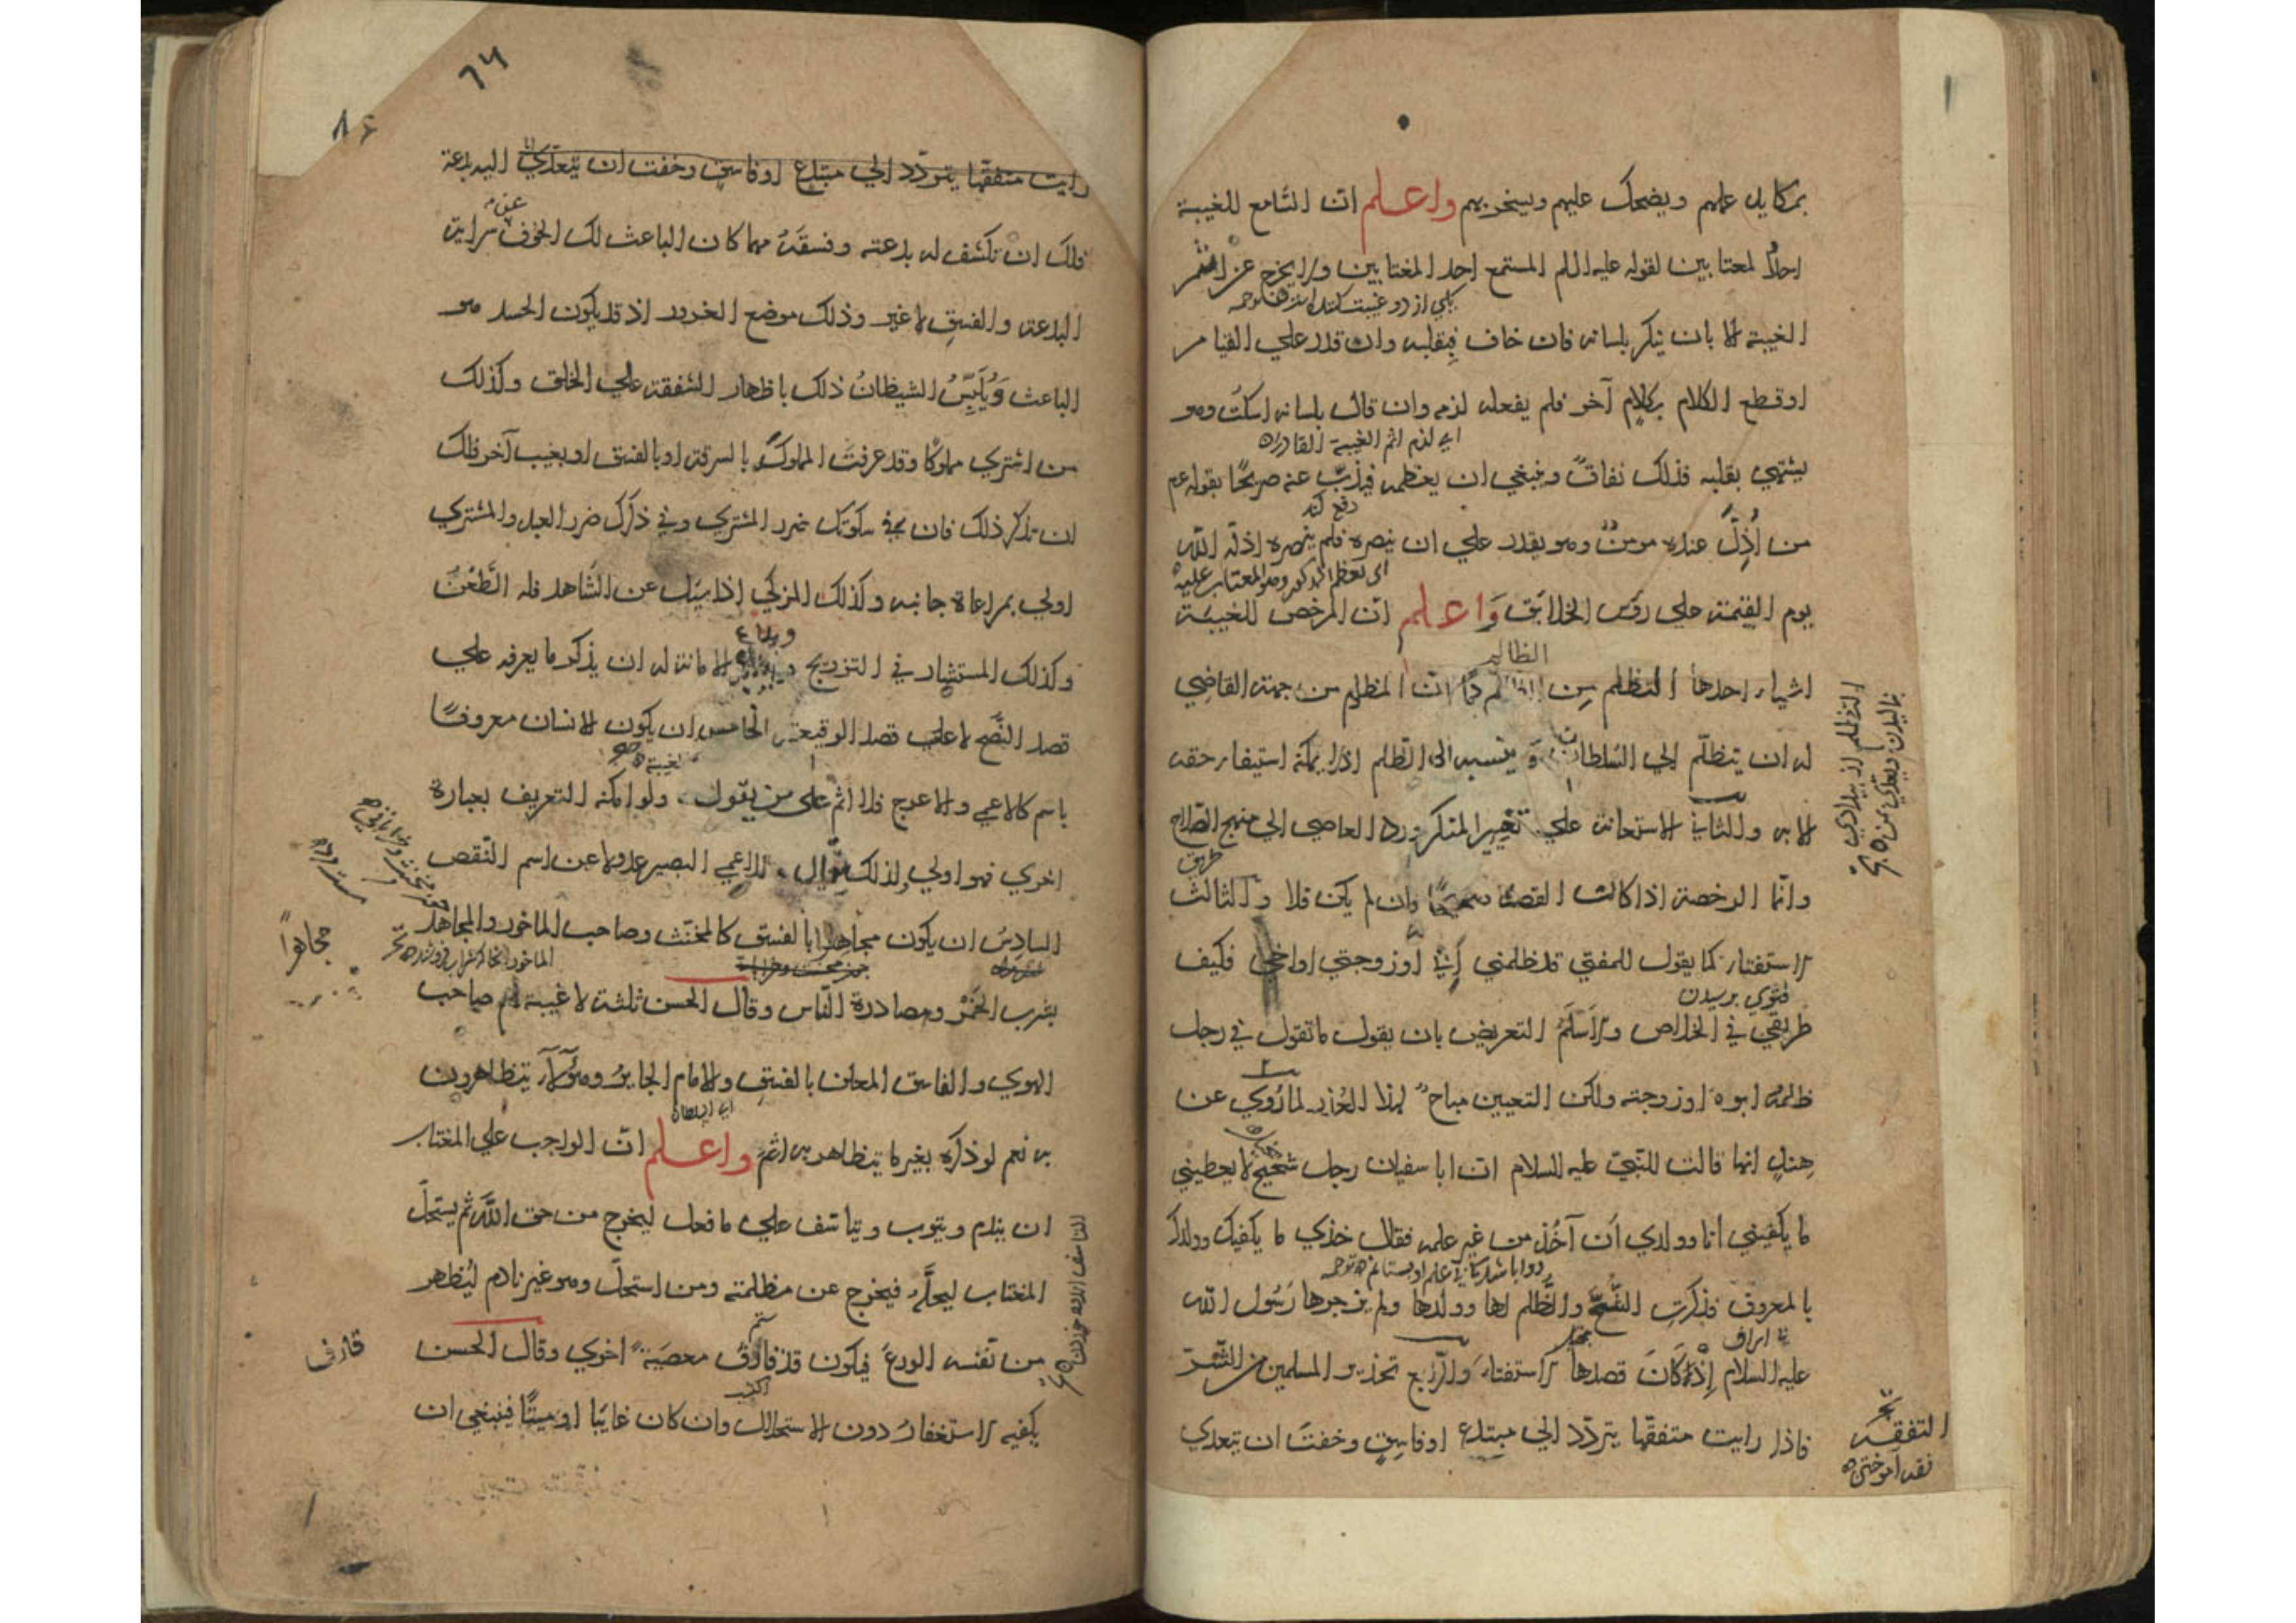 بمكايد علهم ويضحك عليهم ويسخر بهم واعلم ان السامع للغيبة
احد المغتابين لقوله عليه السلم المستمع احد المغتابين ولا يخرج عن اثم
يكي از دو غيبت كننده
الغيبة الا بان ينكر بلسانه فان خاف فبقلبه وان قدر علي القيام
او قطع الكلام بكلام آخر فلم يفعله لزمه وان قال بلسانه اسكت وهو
اي لزم اثم الغيبة القادر
يشتهي بقلبه فذلك نفاق وينبغي ان يعظمه فيذب عنه صريحًا بقوله عم
دفع كند
من أُذِلَّ عنده مومنٌ وهو يقدر علي ان ينصره فلم ينصره اذله الله
اي تعظم المذكور وهو المغتاب عليه
يوم القيمة علي رؤس الخلايق واعلم ان المرخص للغيبة
الظالم
اشياء احدها التظلم من ان المظلوم من جهة القاضي
له ان يتظلم الي السلطان وينسبه الى الظلم اذ لا يمكنه استيفاء حقه
الا به والثاني الاستعانة علي تغيير المنكر ورد العاصي الي منهج الصلاح
طريق
وانما الرخصة اذا كانت القصد صحيحًا وان لم يكن فلا والثالث
الاستفتاء كما يقول للمفتي قد ظلمني ابي او زوجتي او اخي فكيف
فتوي پرسيدن
طريقي في الخلاص والاسلم التعريض بان يقول ما تقول في رجل
ظلمه ابوه او زوجته ولكن التعيين مباح لهذا العذر لما رُوي عن
هند انها قالت للنبي عليه السلام ان ابا سفيان رجل شحيح لا يعطيني
ما يكفيني انا وولدي أن آخُذ من غير علمه فقال خذي ما يكفيك وولدك
بالمعروف فذكرت الشح والظلم لها وولدها ولم يزجرها رسول الله
عليه السلام إذ كان قصدها الاستفتاء والرابع تحذير المسلمين من الشر
فاذا رايت متفقها يتردد الي مبتدع او فاسق وخفت ان يتعدي
التظلم از بيدادي
ناليدن
التفقه
فقه آموختن
٦٤
٨٤
رايت متفقها يتردد الي مبتدع او فاسق وخفت ان يتعدي اليه بدعة
فلك ان تكشف له بدعته وفسقه مهما كان الباعث لك الخوف عن سراية
البدعة والفسق لا غير وذلك موضع الغرور اذ قد يكون الحسد هو
الباعث ويُلَبِّسُ الشيطانُ ذلك باظهار الشفقة علي الخلق وكذلك
من اشتري مملوكًا وقد عرفت المملوك بالسرقة او بالفسق او بعيب آخر فلك
ان تذكر ذلك فان في سكوتك ضرر المشتري وفي ذكرك ضرر العبد والمشتري
اولي بمراعاة جانبه وكذلك المزكي اذا سئل عن الشاهد فله الطعن
وكذلك المستشار في التزويج وايداع الامانة له ان يذكر ما يعرفه علي
قصد النصح لا علي قصد الوقيعة الخامس ان يكون الانسان معروفًا
باسم كالاعمي والاعرج فلا اثم على من يقول ولو امكنه التعريف بعبارة
اخري فهو اولي ولذلك يقال للاعمي البصير عدولا عن اسم النقص
السادس ان يكون مجاهرا بالفسق كالمخنث وصاحب الماخور والمجاهد
مجاهراً
بشرب الخمر ومصادرة الناس وقال الحسن ثلثة لا غيبة لهم صاحب
الهوي والفاسق المعلن بالفسق والامام الجاير وهؤلاء يتظاهرون
اي السلطان
به نعم لو ذكره بغير ما يتظاهر به اثم واعلم ان الواجب علي المغتاب
ان يندم ويتوب ويتاسف علي ما فعل ليخرج من حق الله ثم يستحل
المغتاب ليحله فيخرج عن مظلمته ومن استحل وهو غير نادم ليُظهر
من نفسه الورع فيكون قد قارف معصية اخري وقال الحسن
قارف
يكفيه الاستغفارُ دون الاستحلال وان كان غايبًا او ميتًا فينبغي ان